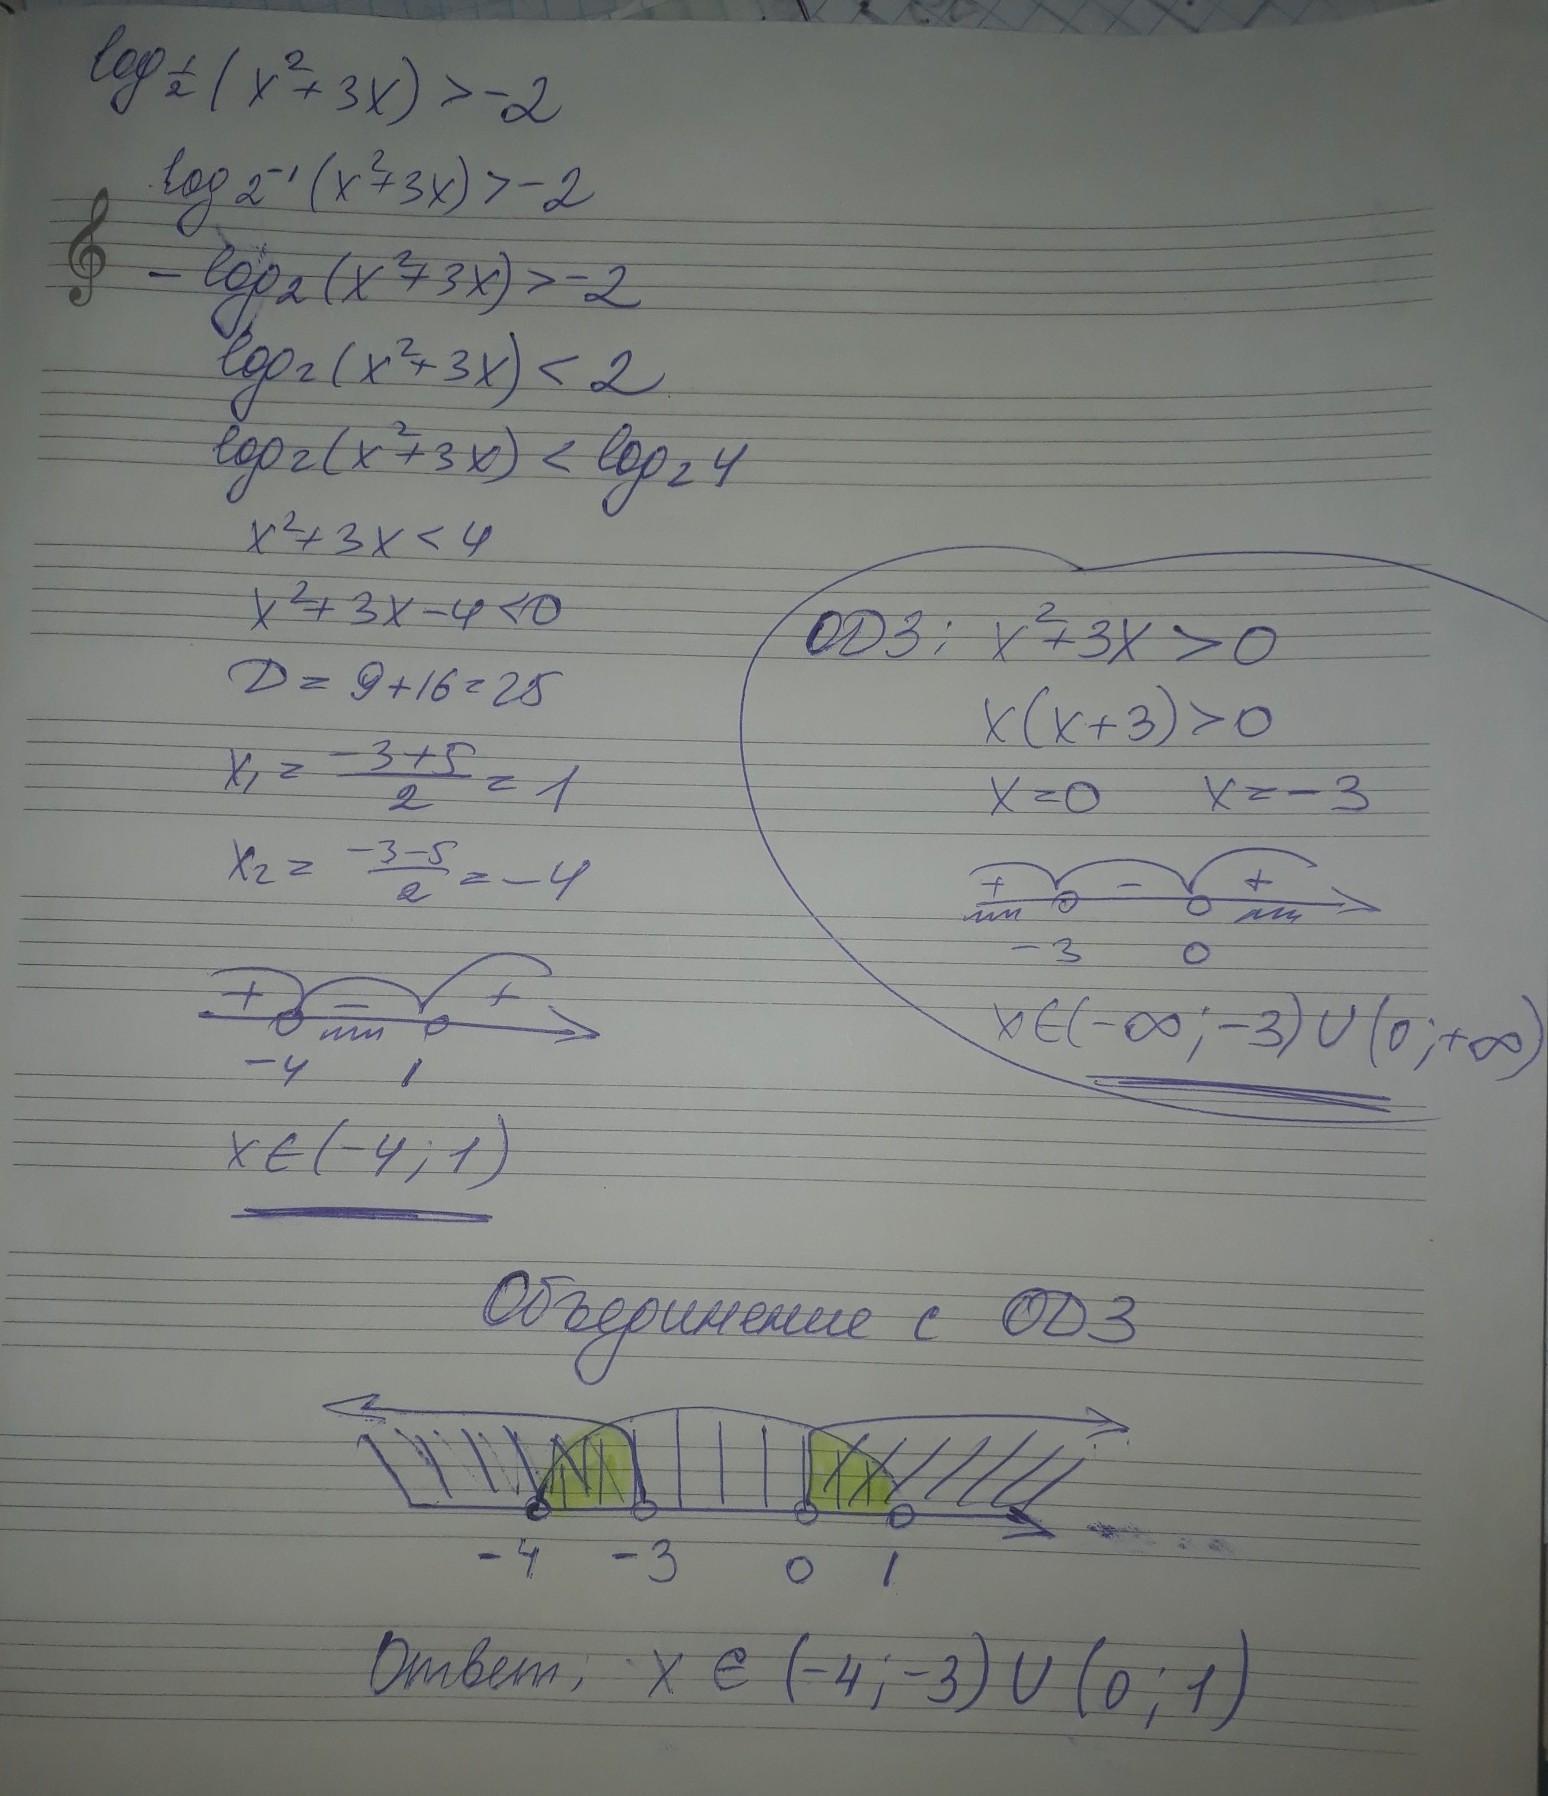 log½(x²+3x)>-2
log2⁻¹(x²+3x)>-2
-log₂(x²+3x)>-2
log₂(x²+3x)<2
log₂(x²+3x)<log₂4
x²+3x<4
x²+3x-4<0
D=9+16=25
x₁=(-3+5)/2=1
x₂=(-3-5)/2=-4
+ - +
-4 1
x∈(-4;1)
ОДЗ: x²+3x>0
x(x+3)>0
x=0 x=-3
+ - +
-3 0
x∈(-∞;-3)∪(0;+∞)
Объединение с ОДЗ
-4 -3 0 1
Ответ: x∈(-4;-3)∪(0;1)